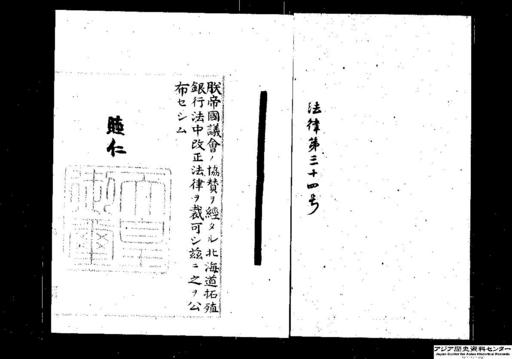 法律第三十四号
朕帝國議會ノ協賛ヲ經タル北海道拓殖
銀行法中改正法律ヲ裁可シ茲ニ之ヲ公
布セシム
睦仁
天皇御璽
アジア歴史資料センター
Japan Center for Asian Historical Records